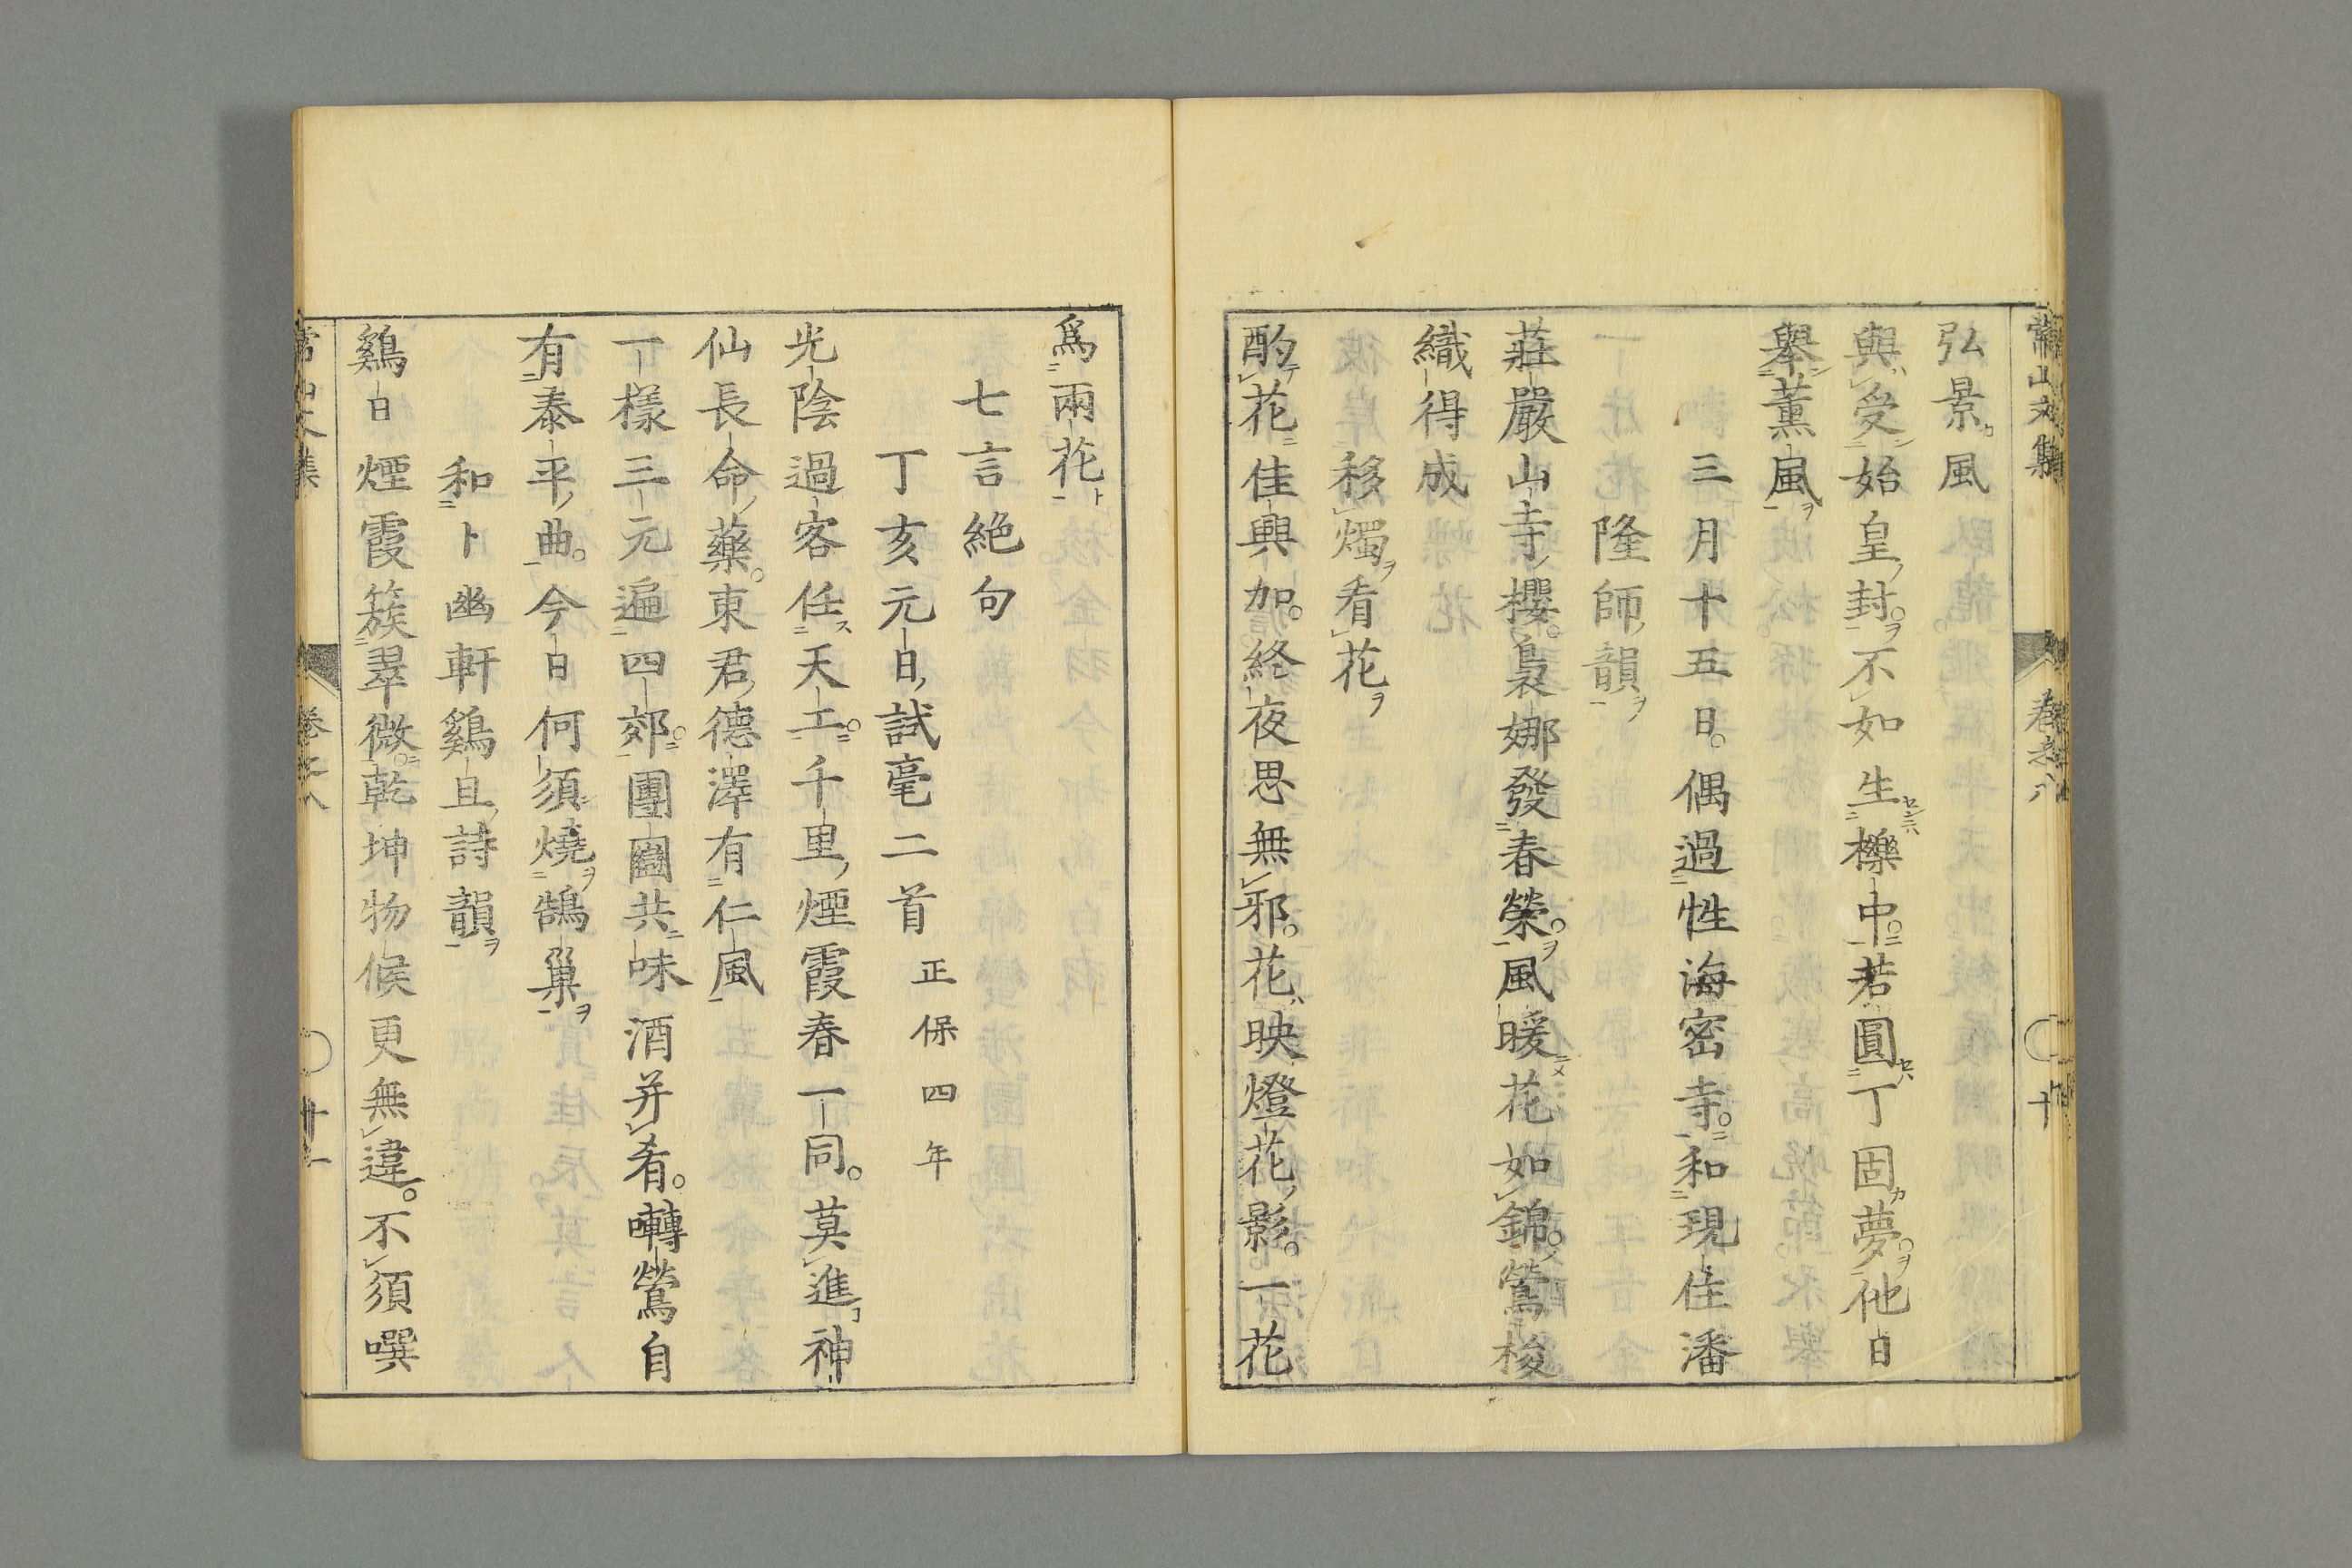 常山文集
卷之八
十
弘景風
與受始皇封不如生櫟中若圓丁固夢他日
舉薰風
三月十五日偶過性海密寺和現住潘
隆師韻
莊嚴山寺櫻裊娜發春榮風暖花如錦鶯梭
織得成
移燭看花
酌花佳興加終夜思無邪花映燈花影一花
爲兩花
七言絕句
丁亥元日試毫二首 正保四年
光陰過客任天工千里煙霞春一同莫進神
仙長命藥東君德澤有仁風
一樣三元遍四郊團圞共味酒并肴囀鶯自
有泰平曲今日何須燒鵲巢
和卜幽軒鷄旦詩韻
鷄日煙霞簇翠微乾坤物候更無違不須噀
常山文集
卷之八
十一